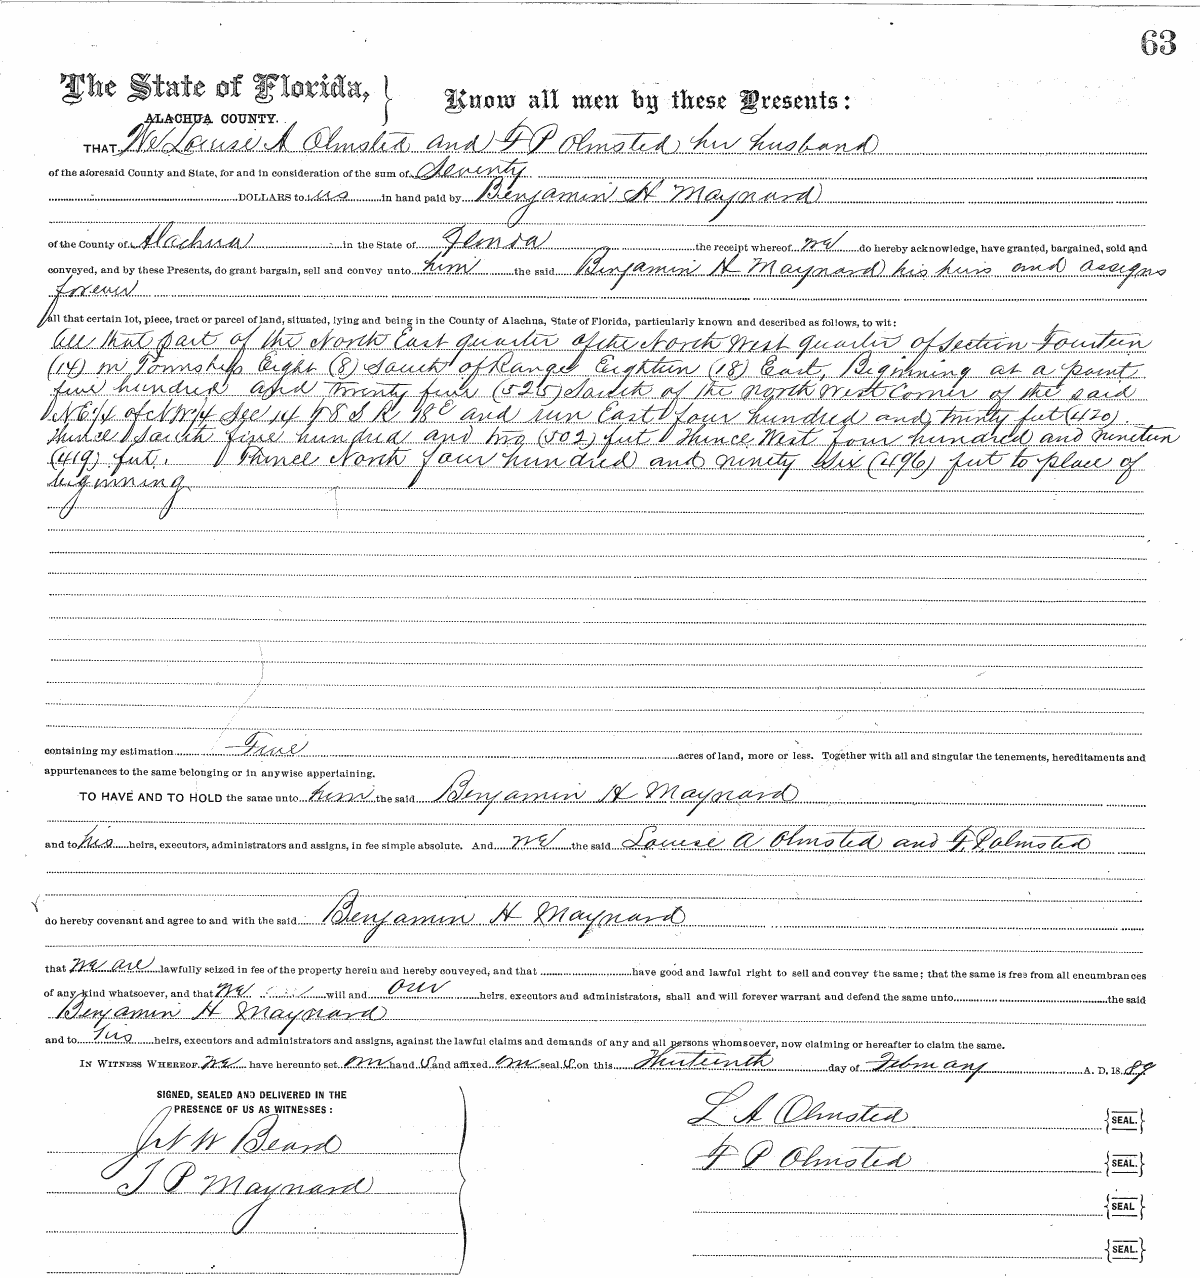 63
The State of Florida,
ALACHUA COUNTY.
Know all men by these Presents:
THAT We Louise A Olmsted and F P Olmsted her husband
of the aforesaid County and State, for and in consideration of the sum of Seventy
DOLLARS to us in hand paid by Benjamin H Maynard
of the County of Alachua in the State of Florida the receipt whereof we do hereby acknowledge, have granted, bargained, sold and
conveyed, and by these Presents, do grant bargain, sell and convey unto him the said Benjamin H Maynard his heirs and assigns
forever
all that certain lot, piece, tract or parcel of land, situated, lying and being in the County of Alachua, State of Florida, particularly known and described as follows, to wit:
All that part of the North East quarter of the North West quarter of Section Fourteen
(14) in Township Eight (8) South of Range Eighteen (18) East, Beginning at a point
five hundred and twenty five (525) South of the North West Corner of the said
N.E 1/4 of N.W 1/4 Sec 14 T 8 S R 18 E and run East four hundred and twenty feet (420).
thence South five hundred and two (502) feet thence West four hundred and nineteen
(419) feet. Thence North four hundred and ninety six (496) feet to place of
beginning
containing my estimation Five acres of land, more or less. Together with all and singular the tenements, hereditaments and
appurtenances to the same belonging or in anywise appertaining.
TO HAVE AND TO HOLD the same unto him the said Benjamin H Maynard
and to his heirs, executors, administrators and assigns, in fee simple absolute. And we the said Louise A Olmsted and F. P. Olmsted
do hereby covenant and agree to and with the said Benjamin H Maynard
that we are lawfully seized in fee of the property herein and hereby conveyed, and that have good and lawful right to sell and convey the same; that the same is free from all encumbrances
of any kind whatsoever, and that we will and our heirs, executors and administrators, shall and will forever warrant and defend the same unto the said
Benjamin H Maynard
and to his heirs, executors and administrators and assigns, against the lawful claims and demands of any and all persons whomsoever, now claiming or hereafter to claim the same.
IN WITNESS WHEREOF we have hereunto set our hand s and affixed our seal s on this Thirteenth day of February A. D. 18 89
SIGNED, SEALED AND DELIVERED IN THE
PRESENCE OF US AS WITNESSES:
L A Olmsted SEAL.
W Beard
F P Olmsted SEAL.
T P Maynard
SEAL
SEAL.